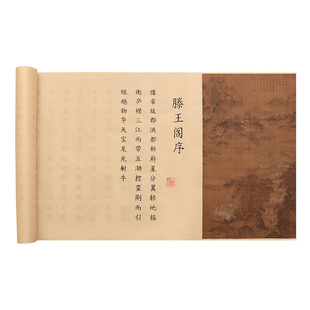 滕王阁序
豫章故郡洪都新府星分翼轸地接
衡庐襟三江而带五湖控蛮荆而引
瓯越物华天宝龙光射牛